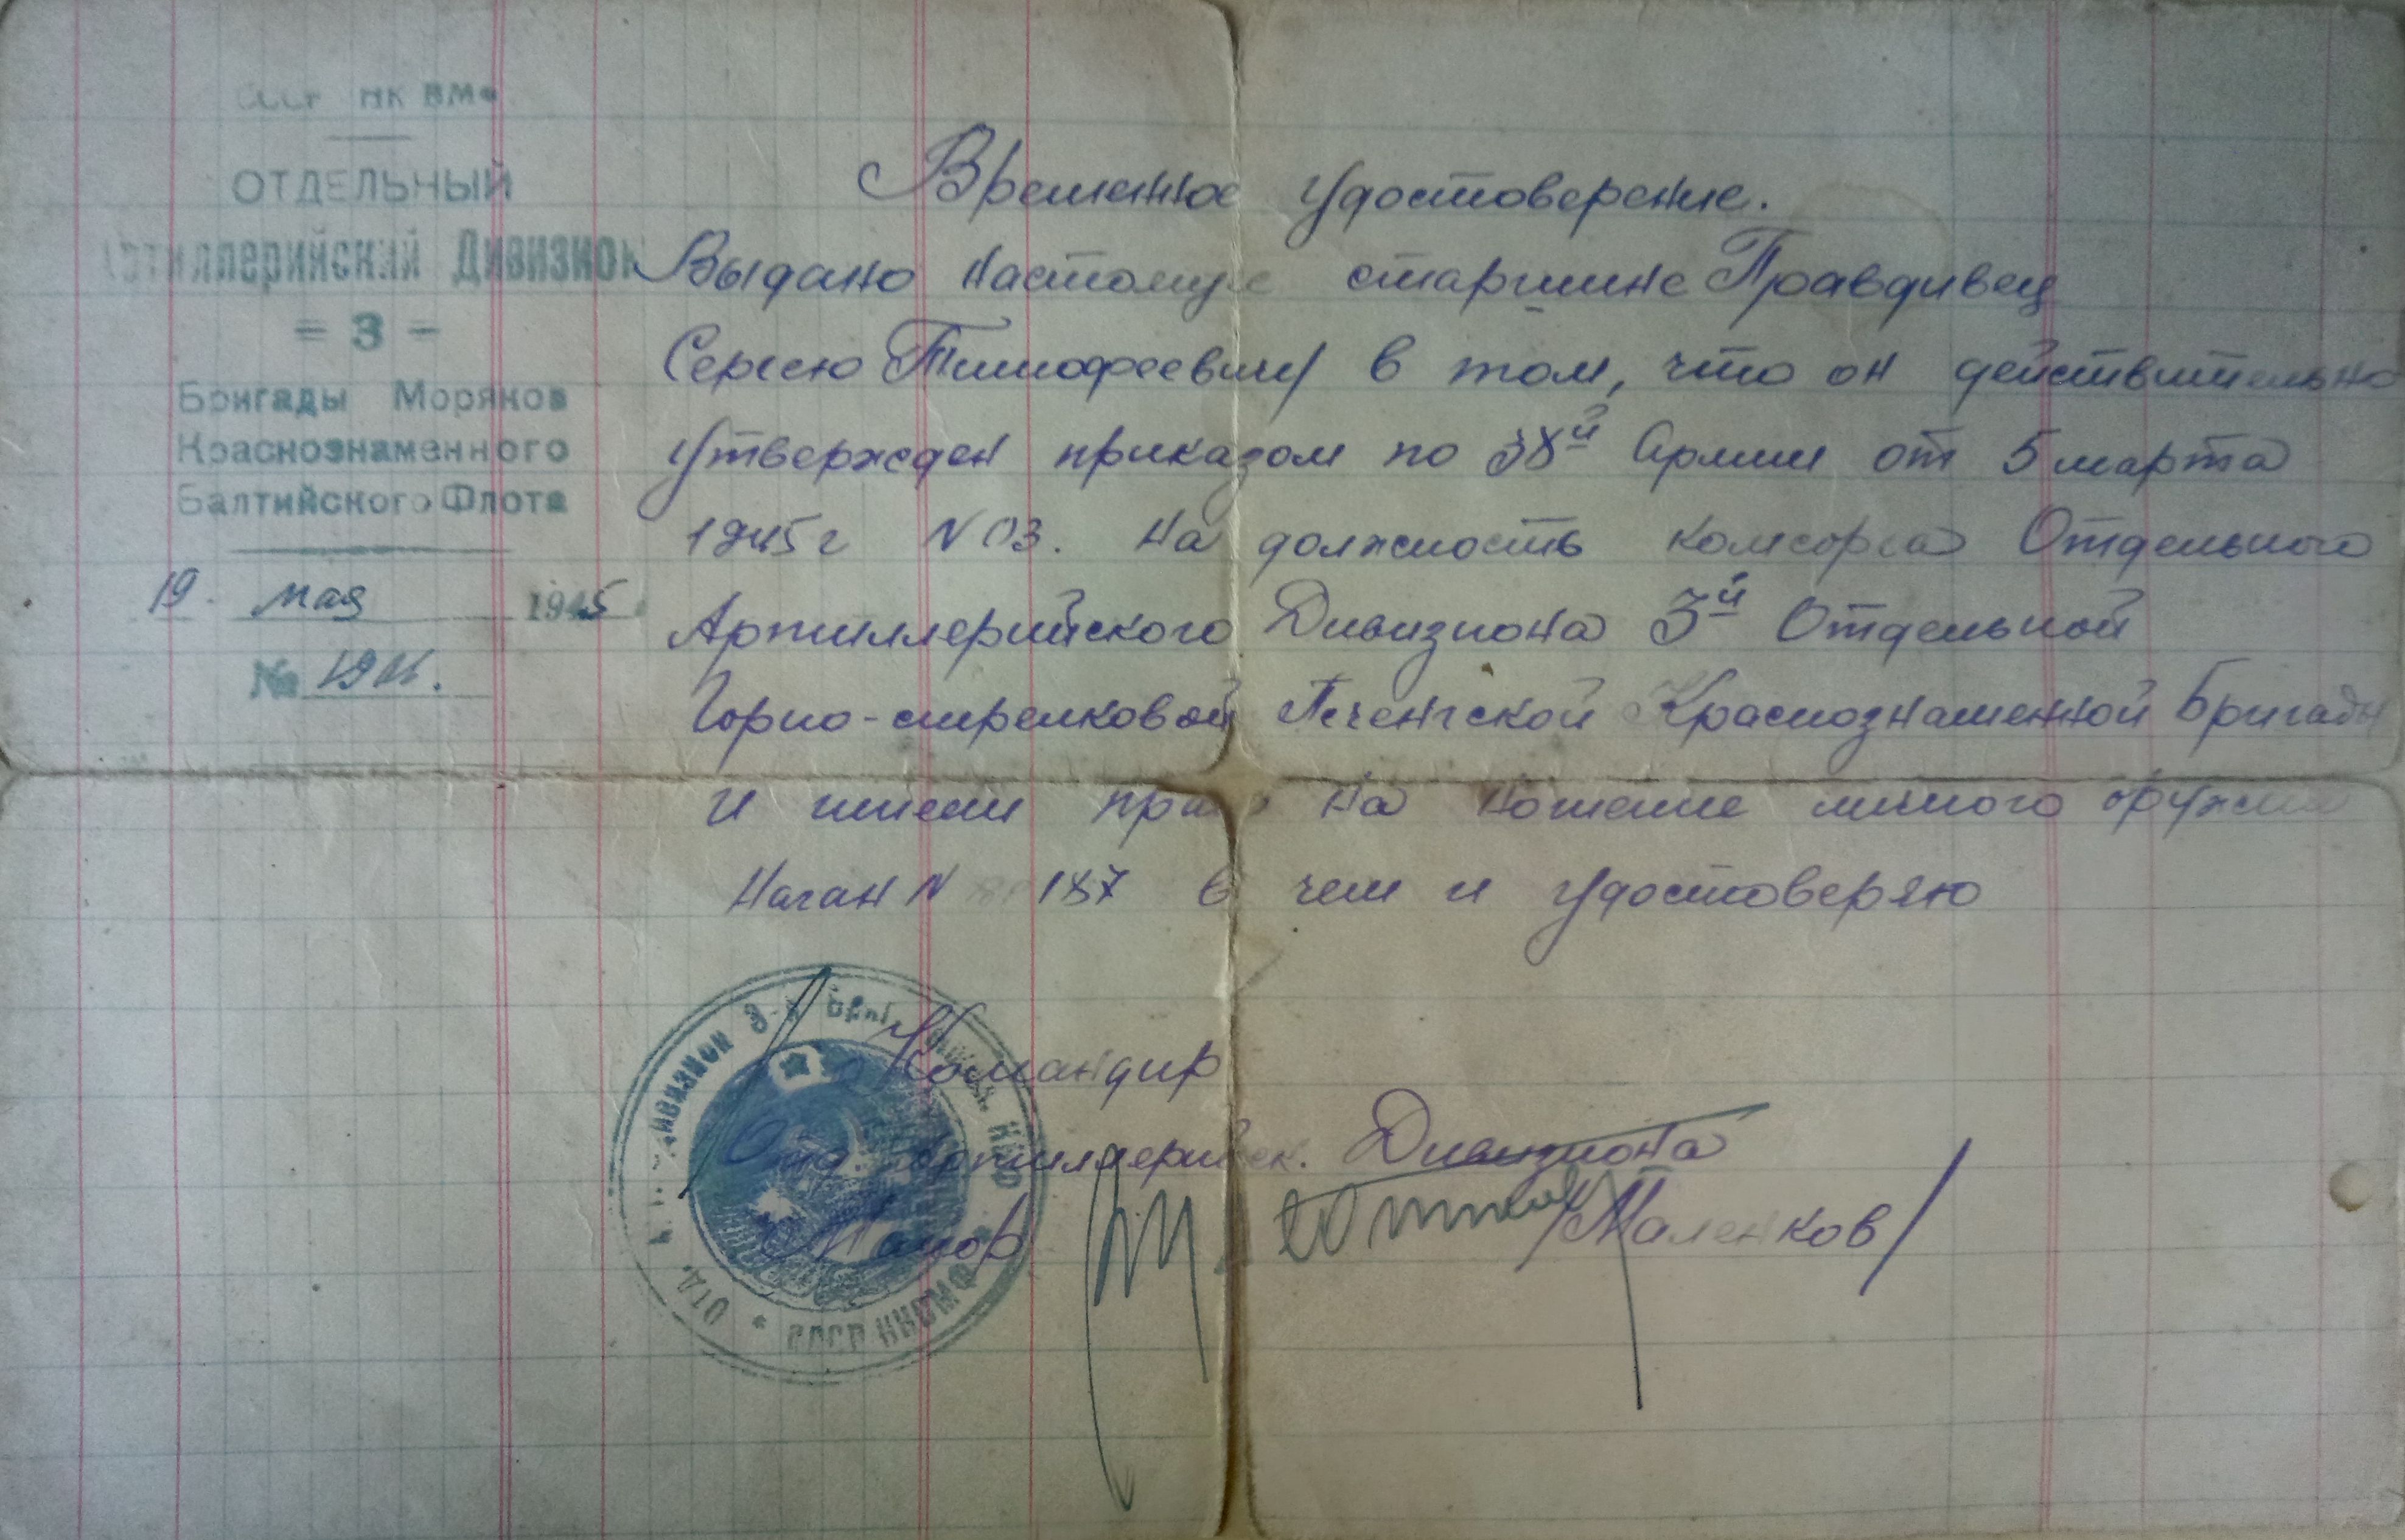 СССР НК ВМФ
ОТДЕЛЬНЫЙ
Артиллерийский Дивизион
= 3 -
Бригады Моряков
Краснознаменного
Балтийского Флота
19. мая 1945
№
Временное удостоверение.
Выдано старшине Правдивец
Сергею Тимофеевичу в том, что он действительно
утвержден приказом по 38й Армии от 5 марта
1945г N 03. на должность комсорга Отдельного
Артиллерийского Дивизиона 3й Отдельной
Горно-стрелковой Печенгской Краснознаменной Бригады
и имеет право на ношение личного оружия
Наган N 187 в чем и удостоверяю
Командир
Отд. Артиллерийск. Дивизиона
Майор /Маленков/
ОТД. дивизион 3-й НКВМФ СССР